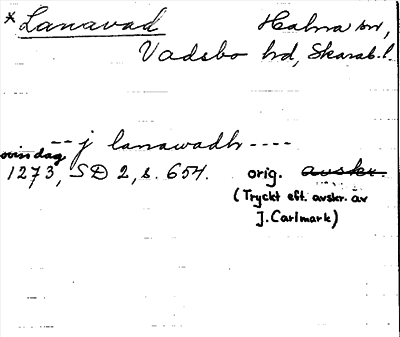 *Lanavad Halna sn,
Vadsbo hd, Skarab. l.
-- j lanawadh ----
1273, SD 2, s. 654. orig. avskr.
(Tryckt eft. avskr. av
J. Carlmark)